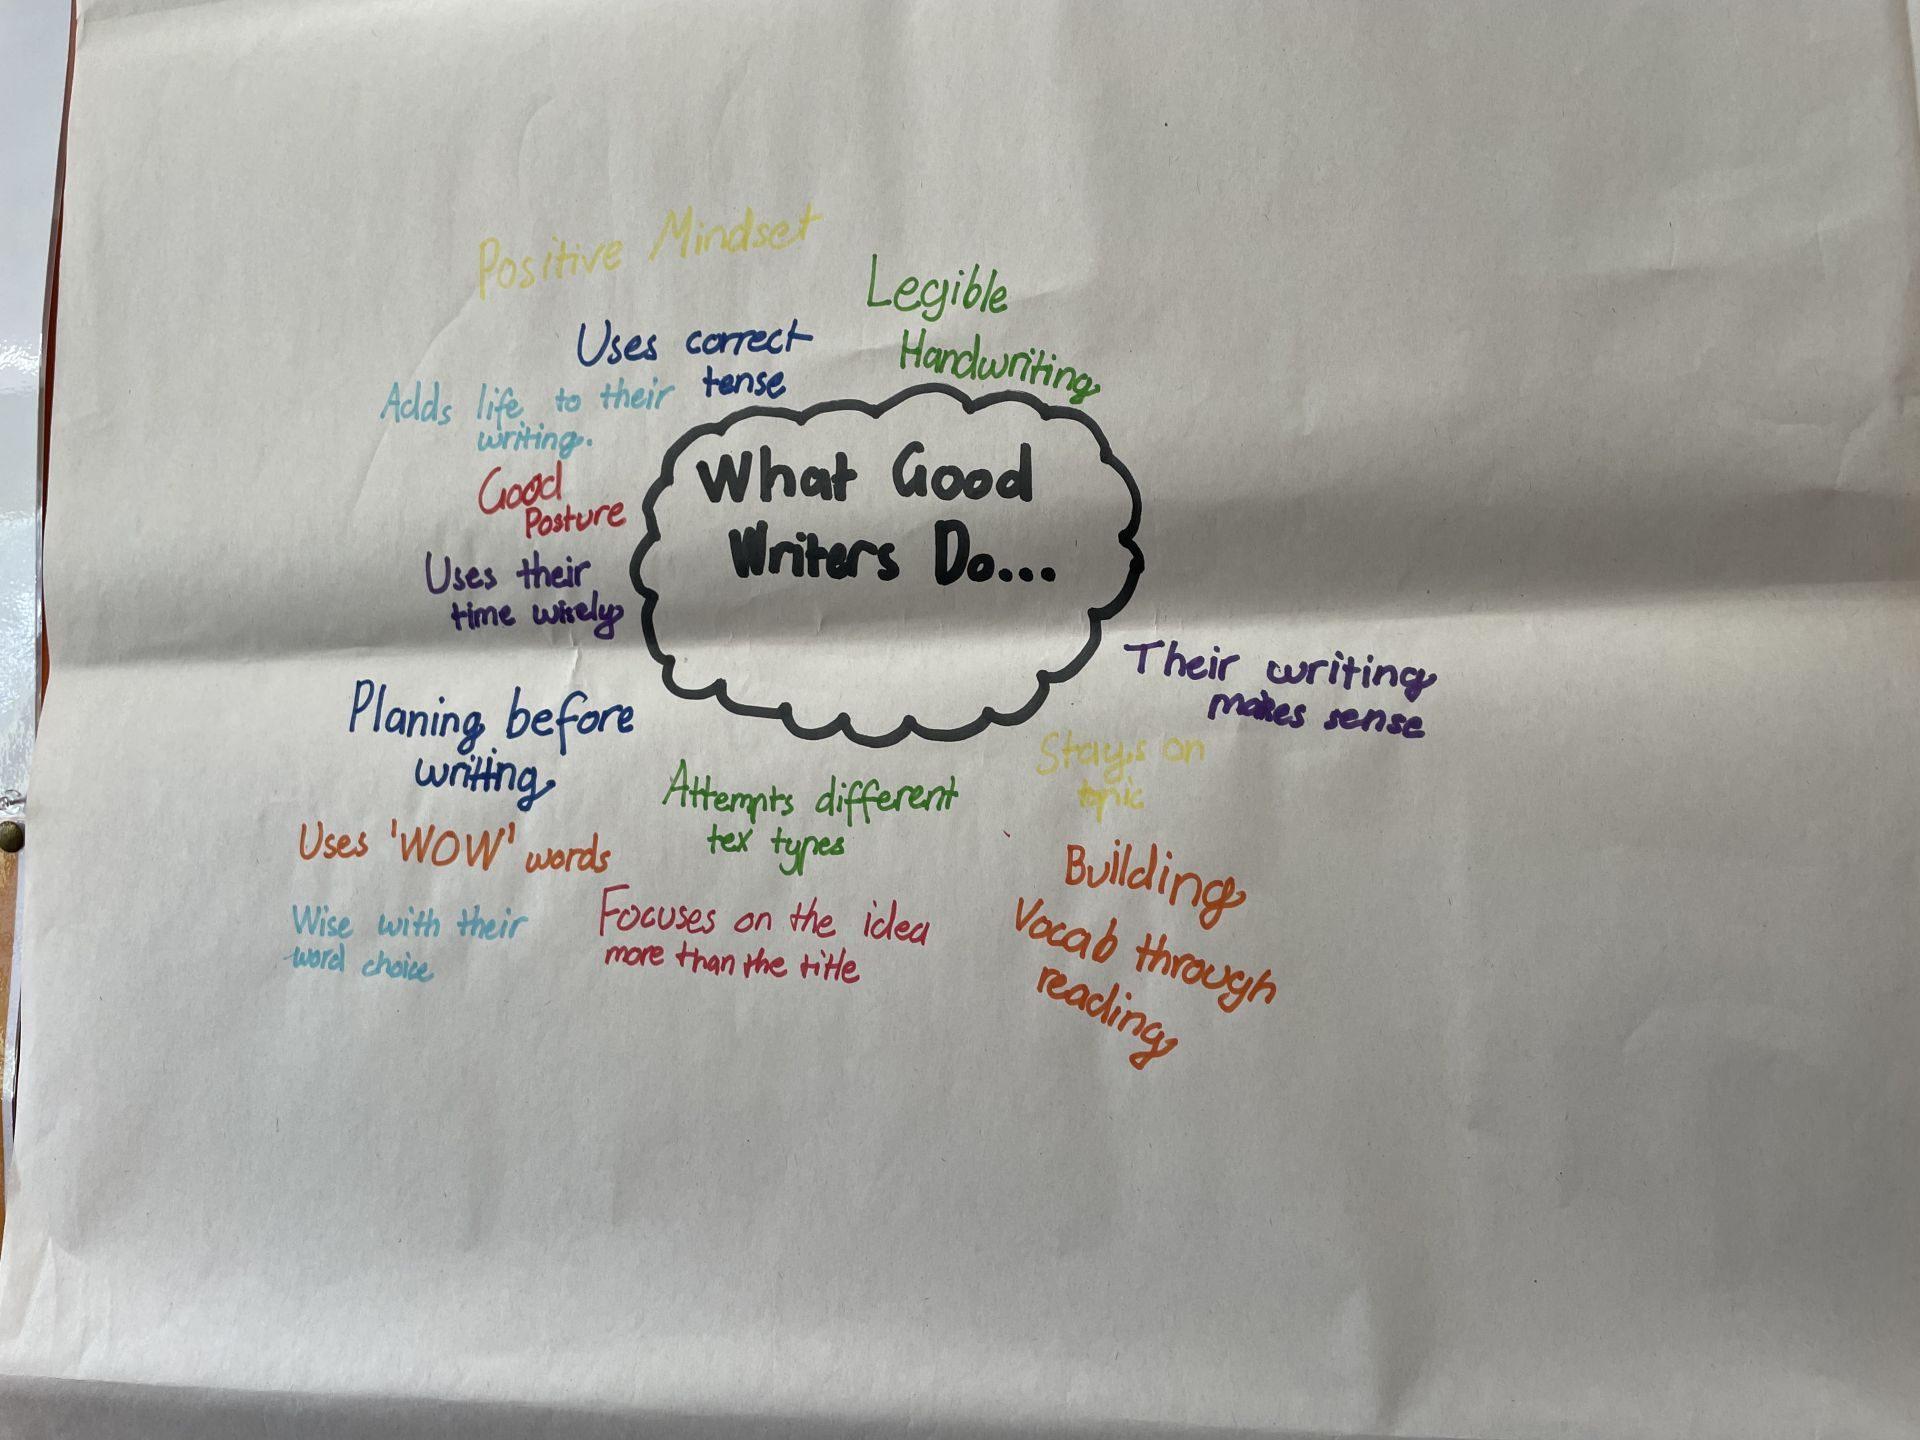 Positive Mindset
Legible
Handwriting
Uses correct
tense
Adds life to their
writing.
Good
Posture
Uses their
time wisely
What Good
Writers Do...
Their writing
makes sense
Planing before
writing
Stays on
topic
Attempts different
tex types
Uses 'WOW' words
Building
Vocab through
reading
Wise with their
word choice
Focuses on the idea
more than the title